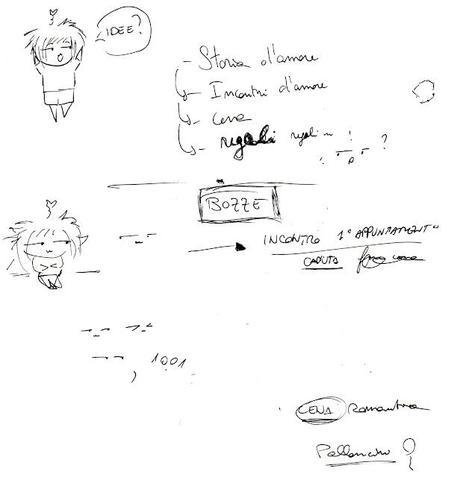 IDEE?
- Storia d'amore
- Incontri d'amore
- Cena
- regali regali !
?
BOZZE
INCONTRO 1° APPUNTAMENTO
CADUTA
1001
CENA Romantica
Palloncino